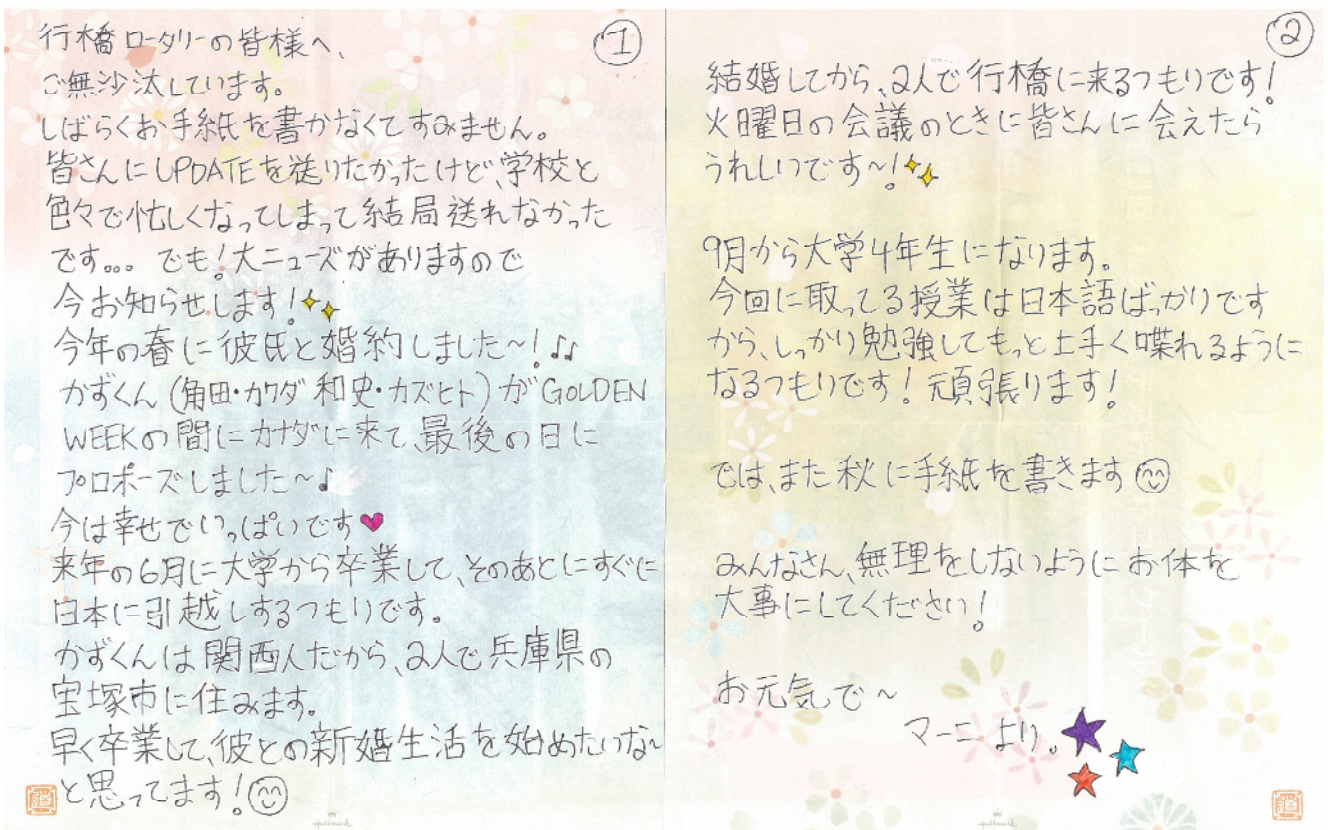 ①
行橋ロータリーの皆様へ、
ご無沙汰しています。
しばらくお手紙を書かなくてすみません。
皆さんにUPDATEを送りたかったけど、学校と
色々で忙しくなってしまって結局送れなかった
です... でも!大ニュースがありますので
今お知らせします!
今年の春に彼氏と婚約しました〜!♫
かずくん(角田・カクダ 和史・カズヒト)がGOLDEN
WEEKの間にカナダに来て、最後の日に
プロポーズしました〜♪
今は幸せでいっぱいです♥
来年の6月に大学から卒業して、そのあとにすぐに
日本に引越しするつもりです。
かずくんは関西人だから、2人で兵庫県の
宝塚市に住みます。
早く卒業して、彼との新婚生活を始めたいな〜
と思ってます!
Hallmark
②
結婚してから、2人で行橋に来るつもりです!
火曜日の会議のときに皆さんに会えたら
うれしいです〜!
9月から大学4年生になります。
今回に取ってる授業は日本語ばっかりです
から、しっかり勉強してもっと上手く喋れるように
なるつもりです!頑張ります!
では、また秋に手紙を書きます
みんなさん、無理をしないようにお体を
大事にしてください!
お元気で〜
マーニより。
Hallmark